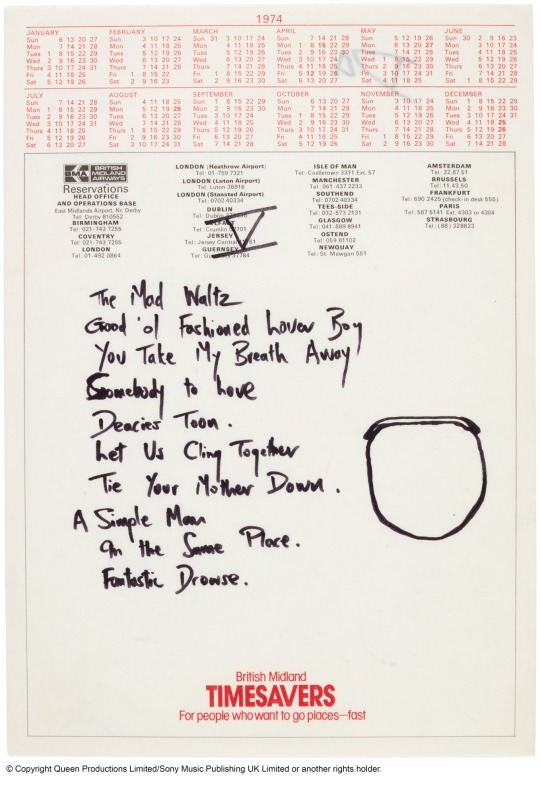 1974
JANUARY
Sun 6 13 20 27
Mon 7 14 21 28
Tues 1 8 15 22 29
Wed 2 9 16 23 30
Thurs 3 10 17 24 31
Fri 4 11 18 25
Sat 5 12 19 26
FEBRUARY
Sun 3 10 17 24
Mon 4 11 18 25
Tues 5 12 19 26
Wed 6 13 20 27
Thurs 7 14 21 28
Fri 1 8 15 22
Sat 2 9 16 23
MARCH
Sun 31 3 10 17 24
Mon 4 11 18 25
Tues 5 12 19 26
Wed 6 13 20 27
Thurs 7 14 21 28
Fri 1 8 15 22 29
Sat 2 9 16 23 30
APRIL
Sun 7 14 21 28
Mon 1 8 15 22 29
Tues 2 9 16 23 30
Wed 3 10 17 24
Thurs 4 11 18 25
Fri 5 12 19 26
Sat 6 13 20 27
MAY
Sun 5 12 19 26
Mon 6 13 20 27
Tues 7 14 21 28
Wed 1 8 15 22 29
Thurs 2 9 16 23 30
Fri 3 10 17 24 31
Sat 4 11 18 25
JUNE
Sun 30 2 9 16 23
Mon 3 10 17 24
Tues 4 11 18 25
Wed 5 12 19 26
Thurs 6 13 20 27
Fri 7 14 21 28
Sat 1 8 15 22 29
JULY
Sun 7 14 21 28
Mon 1 8 15 22 29
Tues 2 9 16 23 30
Wed 3 10 17 24 31
Thurs 4 11 18 25
Fri 5 12 19 26
Sat 6 13 20 27
AUGUST
Sun 4 11 18 25
Mon 5 12 19 26
Tues 6 13 20 27
Wed 7 14 21 28
Thurs 1 8 15 22 29
Fri 2 9 16 23 30
Sat 3 10 17 24 31
SEPTEMBER
Sun 1 8 15 22 29
Mon 2 9 16 23 30
Tues 3 10 17 24
Wed 4 11 18 25
Thurs 5 12 19 26
Fri 6 13 20 27
Sat 7 14 21 28
OCTOBER
Sun 6 13 20 27
Mon 7 14 21 28
Tues 1 8 15 22 29
Wed 2 9 16 23 30
Thurs 3 10 17 24 31
Fri 4 11 18 25
Sat 5 12 19 26
NOVEMBER
Sun 3 10 17 24
Mon 4 11 18 25
Tues 5 12 19 26
Wed 6 13 20 27
Thurs 7 14 21 28
Fri 1 8 15 22 29
Sat 2 9 16 23 30
DECEMBER
Sun 1 8 15 22 29
Mon 2 9 16 23 30
Tues 3 10 17 24 31
Wed 4 11 18 25
Thurs 5 12 19 26
Fri 6 13 20 27
Sat 7 14 21 28
BMA BRITISH MIDLAND AIRWAYS
Reservations
HEAD OFFICE
AND OPERATIONS BASE
East Midlands Airport, Nr. Derby
Tel: Derby 810552
BIRMINGHAM
Tel: 021-743 7255
COVENTRY
Tel: 021-743 7255
LONDON
Tel: 01-492 0864
LONDON (Heathrow Airport)
Tel: 01-759 7321
LONDON (Luton Airport)
Tel: Luton 36916
LONDON (Stansted Airport)
Tel: 0702 40334
DUBLIN
Tel: Dublin
Tel: Crumlin
JERSEY
Tel: Jersey Central
GUERNSEY
37784
ISLE OF MAN
Tel: Castletown 3311 Ext. 57
MANCHESTER
Tel: 061-437 2233
SOUTHEND
Tel: 0702 40334
TEES-SIDE
Tel: 032-573 2131
GLASGOW
Tel: 041-889 8941
OSTEND
Tel: 059 81102
NEWQUAY
Tel: St. Mawgan 551
AMSTERDAM
Tel: 22.87.51
BRUSSELS
Tel: 11.43.50
FRANKFURT
Tel: 690 2425 (check-in desk 555)
PARIS
Tel: 587 5141 Ext. 4303 or 4304
STRASBOURG
Tel: (88) 328823
V
The Mad Waltz
Good 'ol Fashioned Lover Boy
You Take My Breath Away
Somebody to Love
Deacies Toon.
Let Us Cling Together
Tie Your Mother Down.
A Simple Man
In the Same Place.
Fantastic Drowse.
British Midland
TIMESAVERS
For people who want to go places—fast
© Copyright Queen Productions Limited/Sony Music Publishing UK Limited or another rights holder.